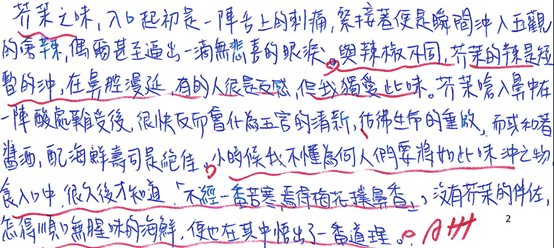 芥茉之味,入口起初是一陣舌上的刺痛,緊接著便是瞬間沖入五觀
的嗆辣,偶爾甚至逼出一滴無悲喜的眼淚。與辣椒不同,芥茉的辣是短
暫的沖,在鼻腔漫延,有的人很是反感,但我獨愛此味。芥茉嗆入鼻中在
一陣酸處難受後,很快反而會化為五官的清新,彷彿生命的重啟,而或和著
醬酒,配海鮮壽司是絕佳。小的候我不懂為何人們要將如此味沖之物
食入口中,很久後才知道「不經一番苦寒,焉得梅花撲鼻香」,沒有芥茉的伴佐,
怎得順口無腥味的海鮮,便也在其中悟出了一番道理。 A+++
2